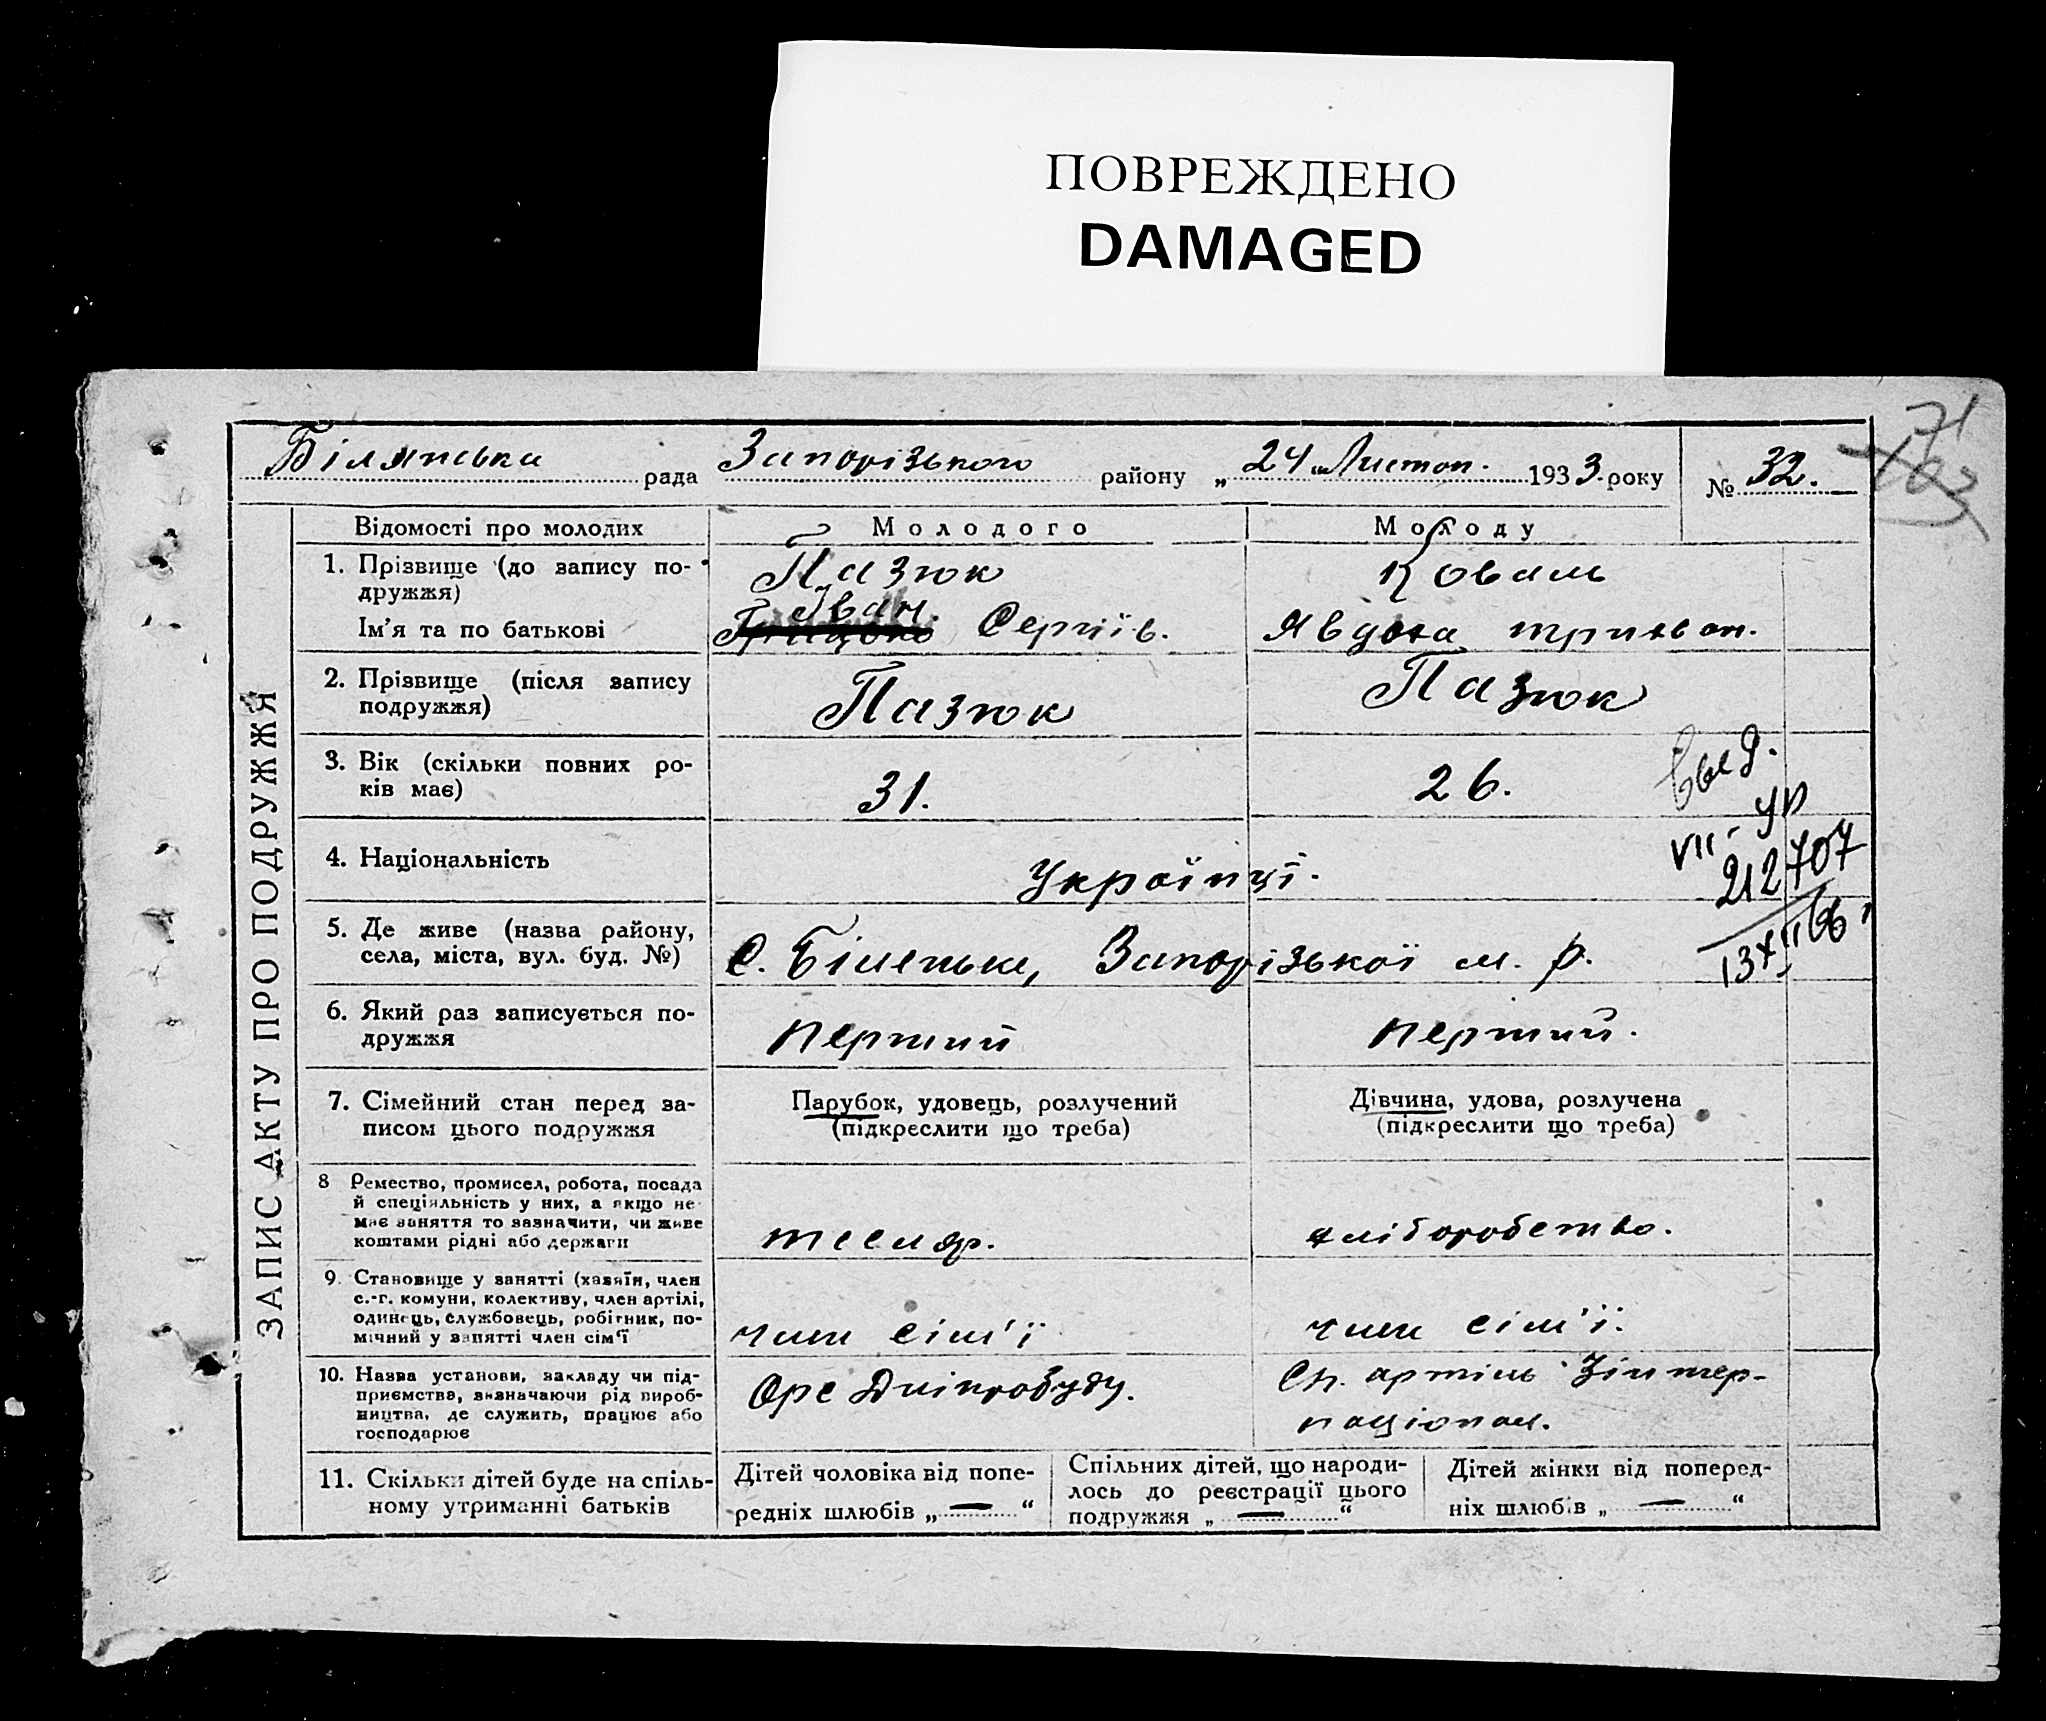 ПОВРЕЖДЕНО
DAMAGED
71
Білянська рада Запорізького району „24" Листоп. 1933 року № 32.
ЗАПИС АКТУ ПРО ПОДРУЖЖЯ
Відомості про молодих Молодого Молоду
1. Прізвище (до запису по-
дружжя)
Пазюк Коваль
Іван
Ім'я та по батькові Сергіїв. Явдоха
2. Прізвище (після запису
подружжя)
Пазюк Пазюк
3. Вік (скільки повних ро-
ків має)
31. 26.
Выд.
VII-УР
212707
13XII66
4. Національність
Українці.
5. Де живе (назва району,
села, міста, вул. буд. №)
С. Біленьке, Запорізької м. р.
6. Який раз записується по-
дружжя
перший перший.
7. Сімейний стан перед за-
писом цього подружжя
Парубок, удовець, розлучений
(підкреслити що треба)
Дівчина, удова, розлучена
(підкреслити що треба)
8 Ремество, промисел, робота, посада
й спеціяльність у них, а якщо не
має заняття то зазначити, чи живе
коштами рідні або держави
тесляр. хліборобство.
9. Становище у занятті (хазяїн, член
с.-г. комуни, колективу, член артілі,
одинець, службовець, робітник, по-
мічний у занятті член сім'ї
член сім'ї член сім'ї.
10. Назва установи, закладу чи під-
приємства, визначаючи рід вироб-
ництва, де служить, працює або
господарює
Орс Дніпробуду.
Сп. артіль Інтер-
націонал.
11. Скільки дітей буде на спіль-
ному утриманні батьків
Дітей чоловіка від попе-
редніх шлюбів „ — “
Спільних дітей, що народи-
лось до реєстрації цього
подружжя „ — “
Дітей жінки від поперед-
ніх шлюбів „ — “